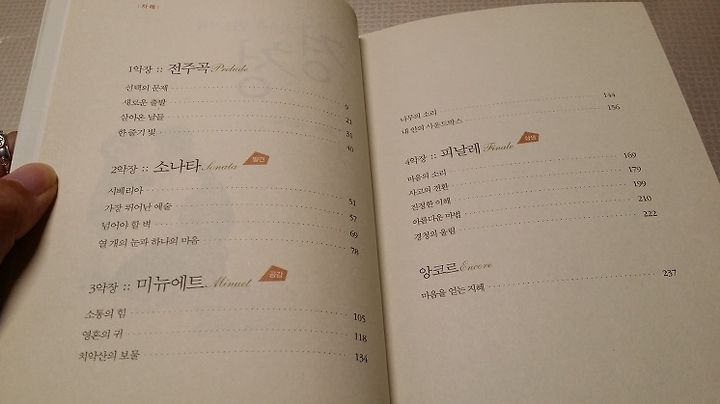 | 차례 |
1악장 :: 전주곡 Prelude
선택의 문제 9
새로운 출발 21
살아온 날들
한 줄기 빛 40
2악장 :: 소나타 Sonata 발견
시베리아 51
가장 뛰어난 예술 57
넘어야 할 벽 69
열 개의 눈과 하나의 마음 78
3악장 :: 미뉴에트 Minuet 공감
소통의 힘 105
영혼의 귀 118
치악산의 보물 134
나무의 소리 144
내 안의 사운드박스 156
4악장 :: 피날레 Finale 상생
마음의 소리 169
사고의 전환 179
진정한 이해 199
아름다운 마법 210
경청의 울림 222
앙코르 Encore
마음을 얻는 지혜 237